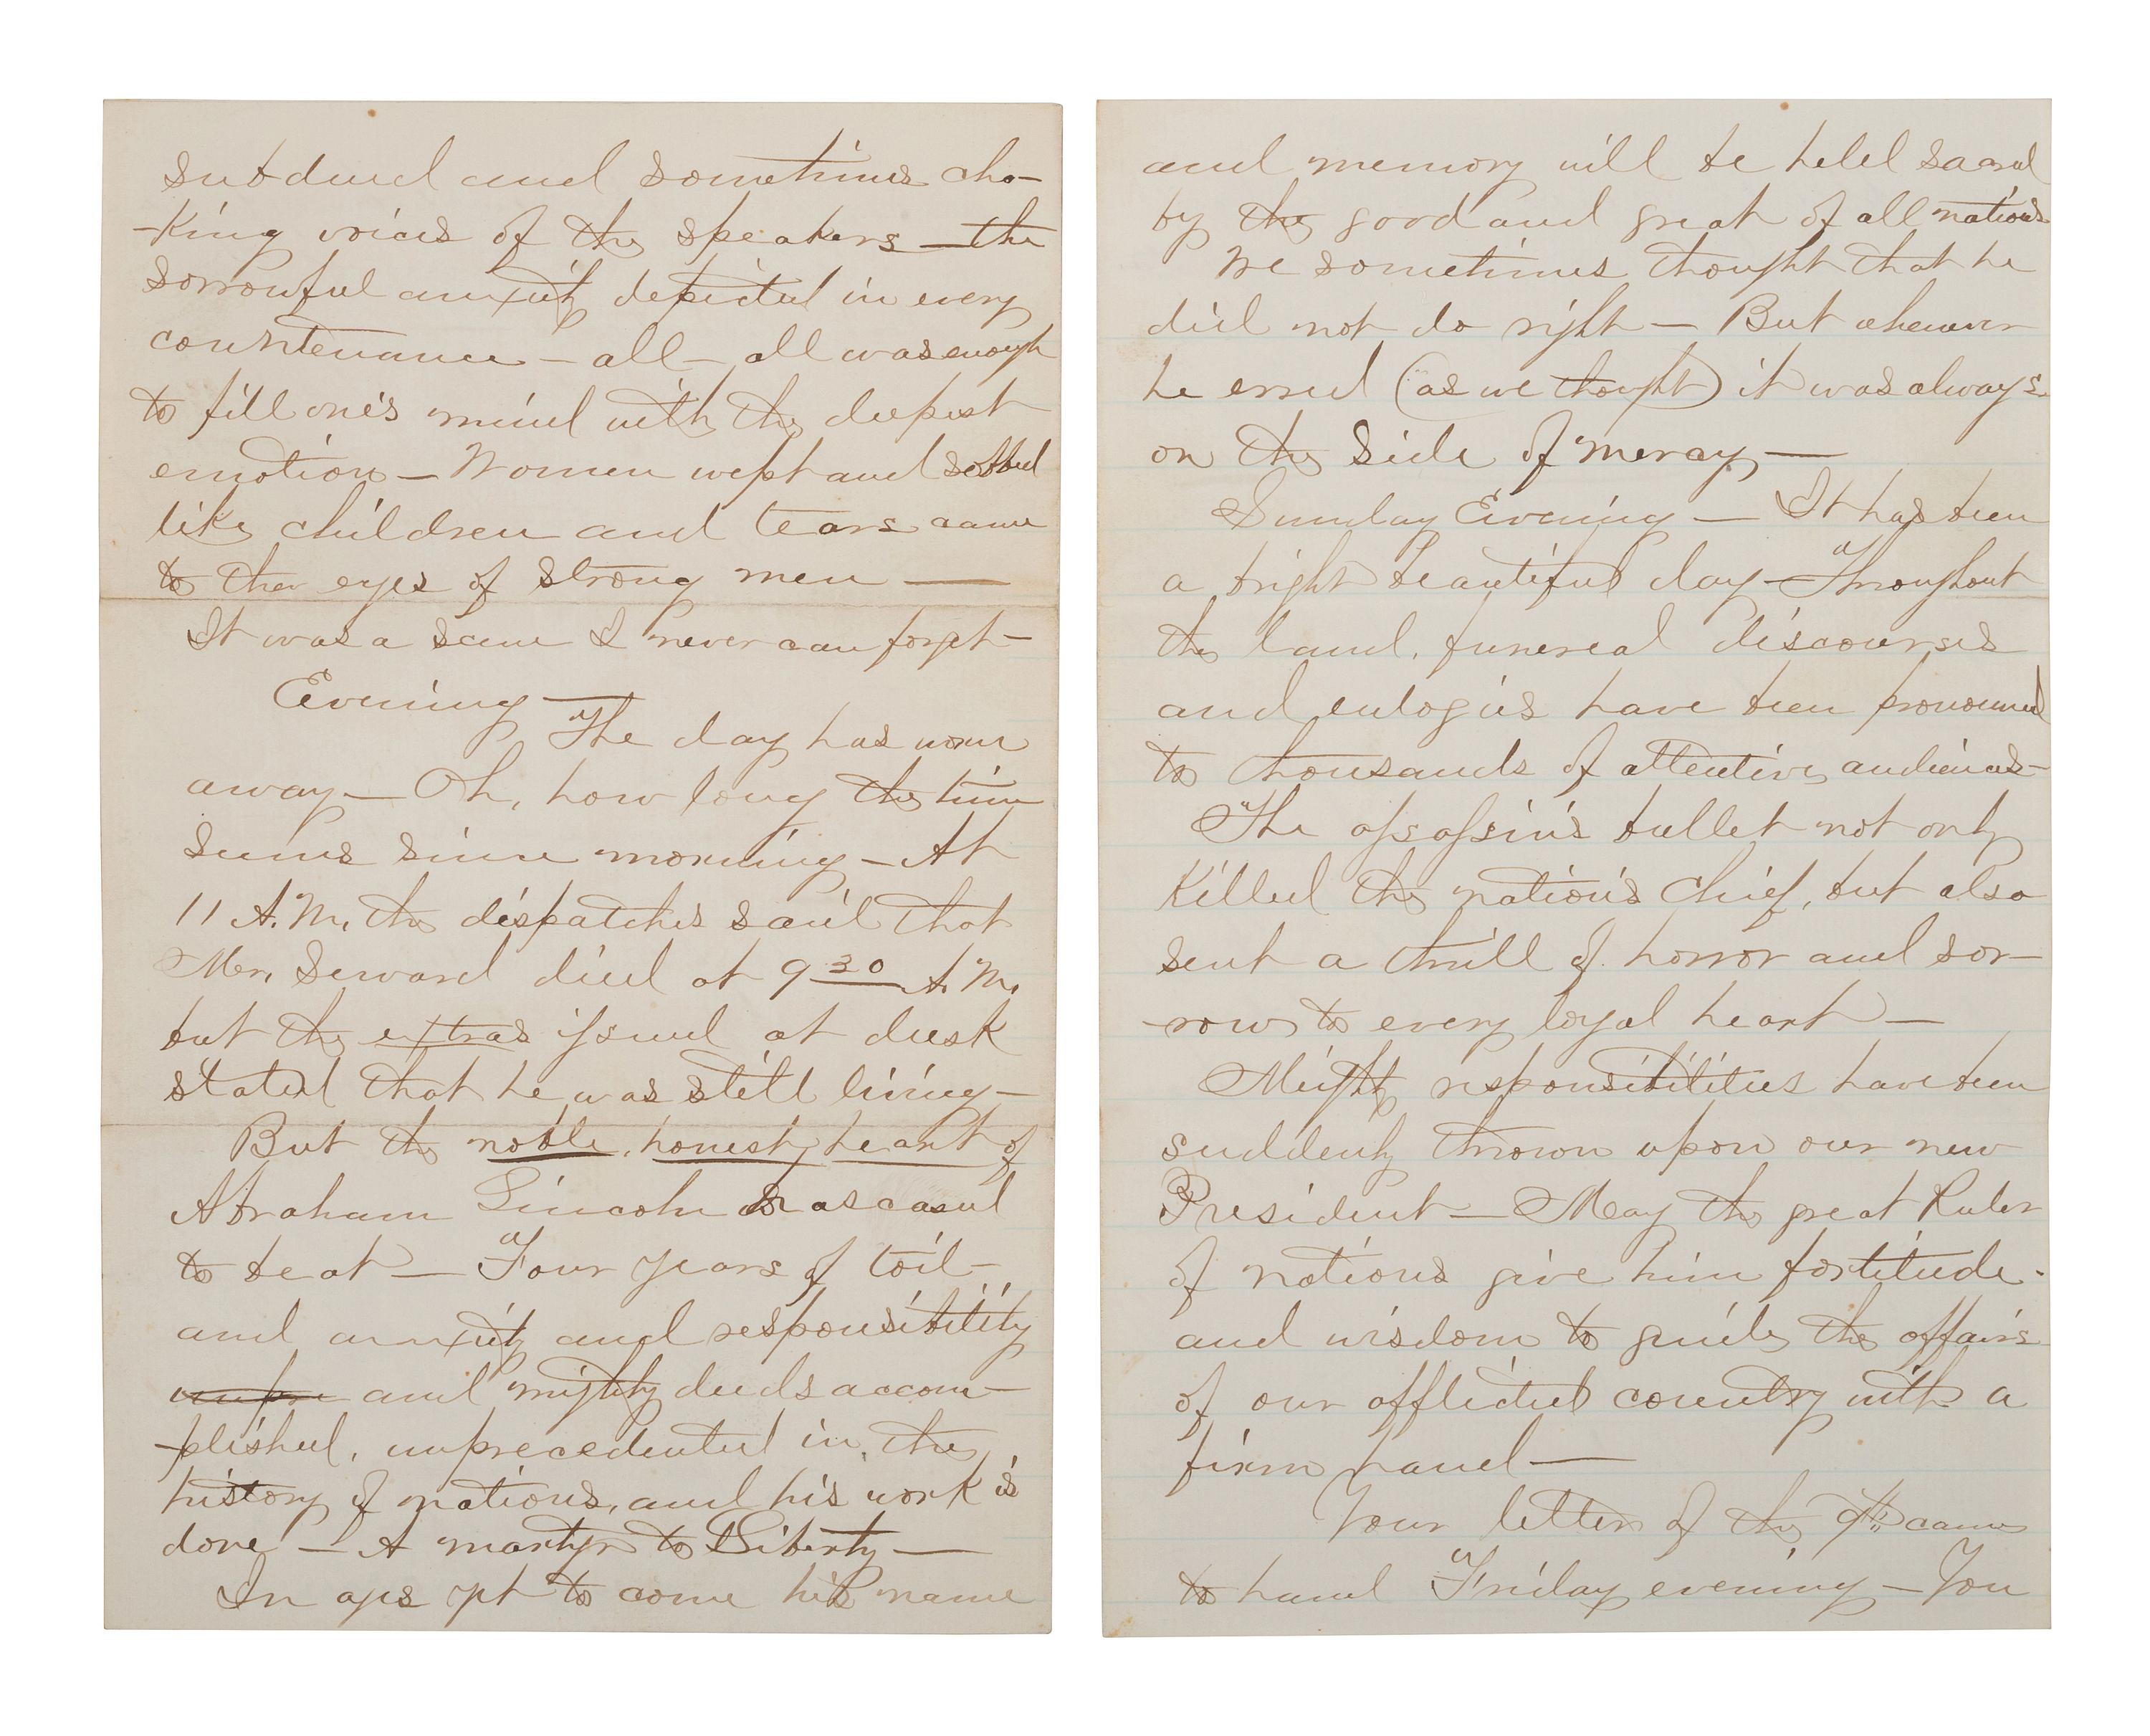 subdued and sometimes cho-
-king voices of the speakers — the
sorrowful anxiety depicted in every
countenance — all — all was enough
to fill one's mind with the deepest
emotion — Women wept and sobbed
like children and tears came
to the eyes of strong men —
It was a scene I never can forget —
Evening —
The day has worn
away — Oh, how long the time
seems since morning — At
11 A.M. the dispatches said that
Mr. Seward died at 9 30 A.M.
but the extras issued at dusk
stated that he was still living —
But the noble, honest, heart of
Abraham Lincoln has ceased
to beat — Four years of toil —
and anxiety and responsibility
and mighty deeds accom-
-plished, unprecedented in the
history of nations, and his work is
done — A martyr to Liberty —
In ages yet to come his name
and memory will be held sacred
by the good and great of all nations
We sometimes thought that he
did not do right — But whenever
he erred (as we thought) it was always
on the side of mercy, —
Sunday Evening — It has been
a bright beautiful day — Throughout
the land, funereal discourses
and eulogies have been pronounced
to thousands of attentive audiences —
The assassin's bullet not only
killed the nation's chief, but also
sent a thrill of horror and sor-
-row to every loyal heart —
Mighty responsibilities have been
suddenly thrown upon our new
President — May the great Ruler
of nations give him fortitude
and wisdom to guide the affairs
of our afflicted country with a
firm hand —
Your letter of the 9th came
to hand Friday evening — You